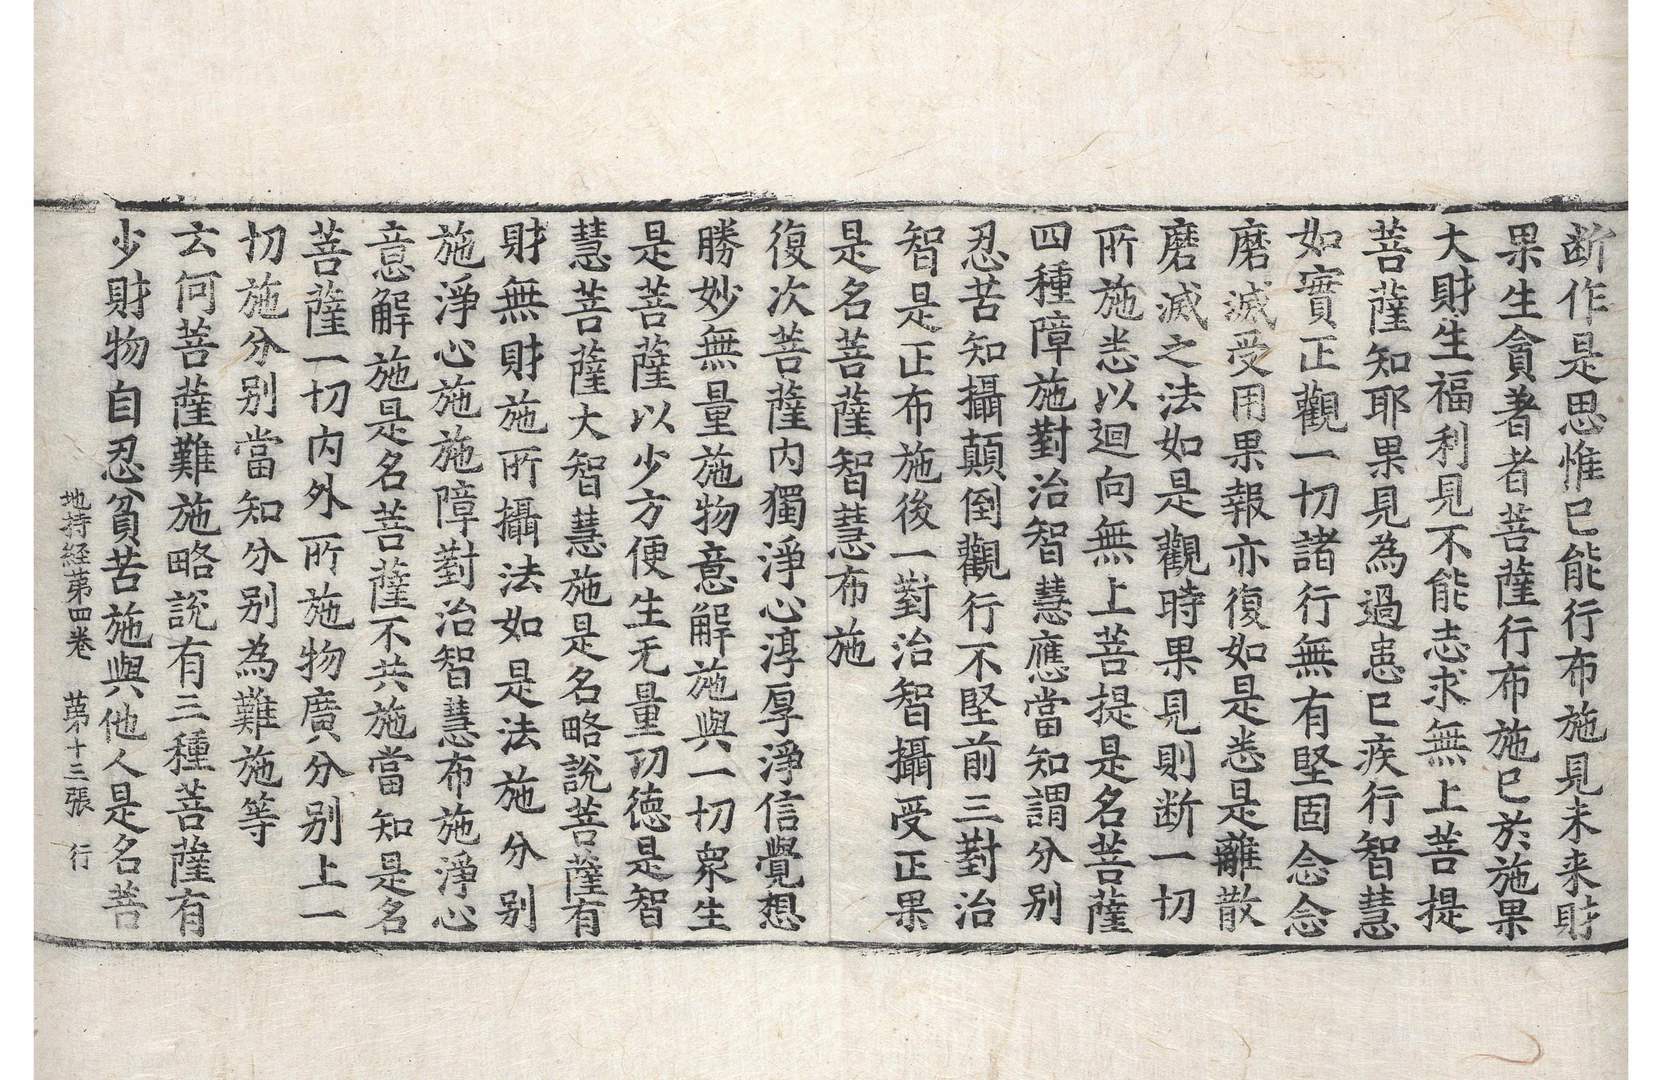 断作是思惟已能行布施見未来財
果生貪著者菩薩行布施已於施果
大財生福利見不能志求無上菩提
菩薩知耶果見為過患已疾行智慧
如實正觀一切諸行無有堅固念念
磨滅受用果報亦復如是悉是離散
磨滅之法如是觀時果見則断一切
所施悉以迴向無上菩提是名菩薩
四種障施對治智慧應當知謂分别
忍苦知攝顛倒觀行不堅前三對治
智是正布施後一對治智攝受正果
是名菩薩智慧布施
復次菩薩内獨淨心淳厚淨信覺想
勝妙無量施物意解施與一切衆生
是菩薩以少方便生无量功德是智
慧菩薩大智慧施是名略說菩薩有
財無財施所攝法如是法施分别
施淨心施施障對治智慧布施淨心
意解施是名菩薩不共施當知是名
菩薩一切内外所施物廣分别上一
切施分别當知分别為難施等
云何菩薩難施略說有三種菩薩有
少財物自忍貧苦施與他人是名菩
地持経苐四卷 苐十三張 行